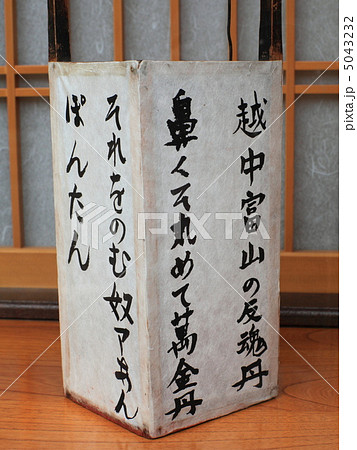 越中富山の反魂丹
鼻くそ丸めて萬金丹
それをのむ奴アあん
ぽんたん
PIXTA
pixta.jp - 5043232